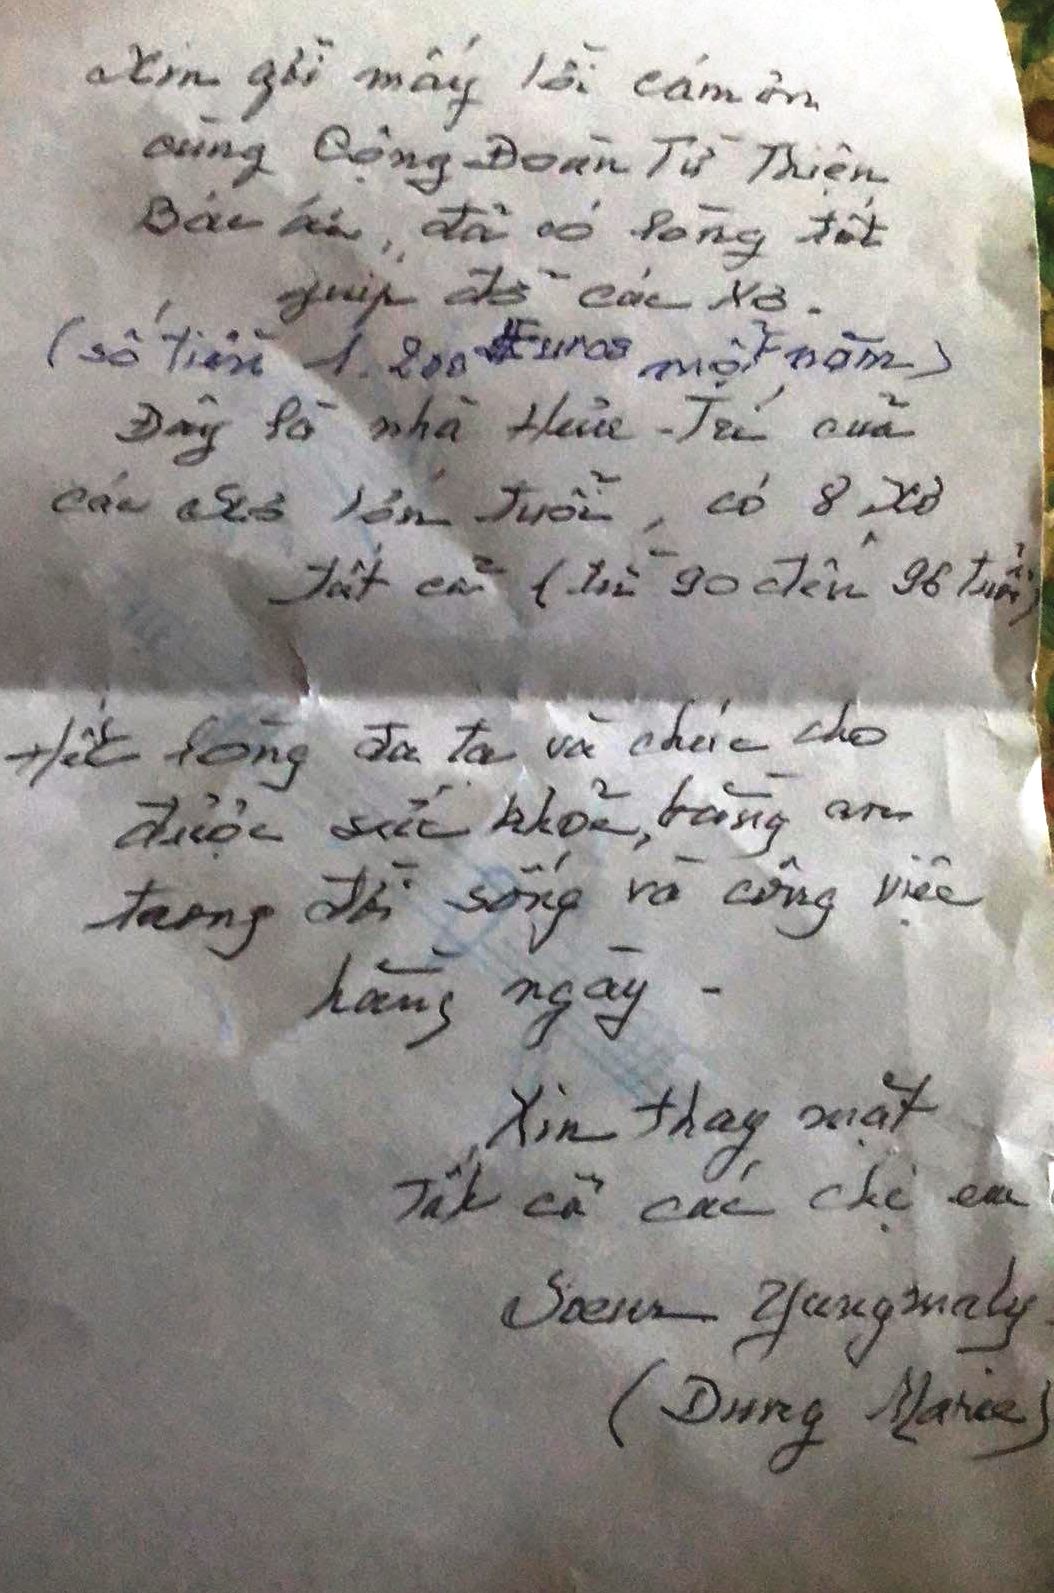 Xin gởi mấy lời cám ơn
cùng Cộng Đoàn Từ Thiện
Bác ái, đã có lòng tốt
giúp đỡ các Xơ.
(số tiền 1.200 Euros một năm)
Đây là nhà Hưu-Trí của
các Xơ lớn tuổi, có 8 Xơ
tất cả (từ 90 đến 96 tuổi)
Hết lòng đa tạ và chúc cho
được sức khỏe, bằng an
trong đời sống và công việc
hằng ngày -
Xin thay mặt
Tất cả các chị em
Soeur Yungmaly
(Dung Marie)